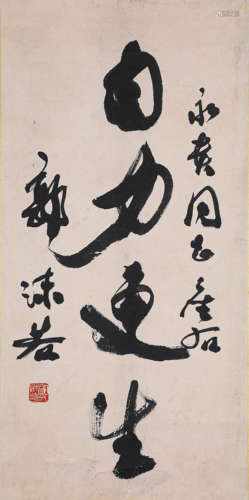 永贵同志属
自力更生
郭沫若